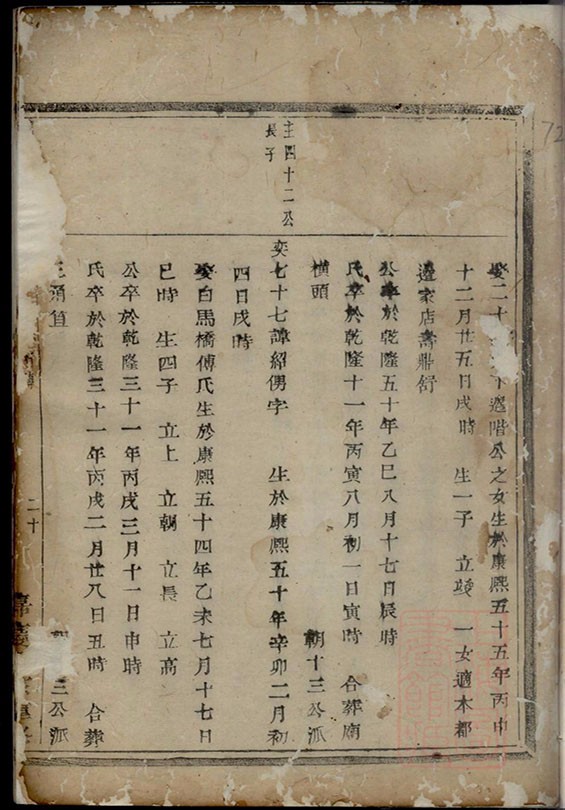 娶二十 下 階公之女生於康熙五十五年丙申
十二月廿五日戌時 生一子 立 一女適本都
邊家店壽鼎舒
公卒於乾隆五十年乙巳八月十七日辰時
氏卒於乾隆十一年丙寅八月初一日寅時 合葬廟
橫頭 朝十三公派
主四十二公
長子
奕七十七諱紹侽字 生於康熙五十年辛卯二月初
四日戌時
娶白馬橋傅氏生於康熙五十四年乙未七月十七日
巳時 生四子 立上 立朝 立長 立高
公卒於乾隆三十一年丙戌三月十一日申時
氏卒於乾隆三十一年丙戌二月廿八日丑時 合葬
三公派
二十
72